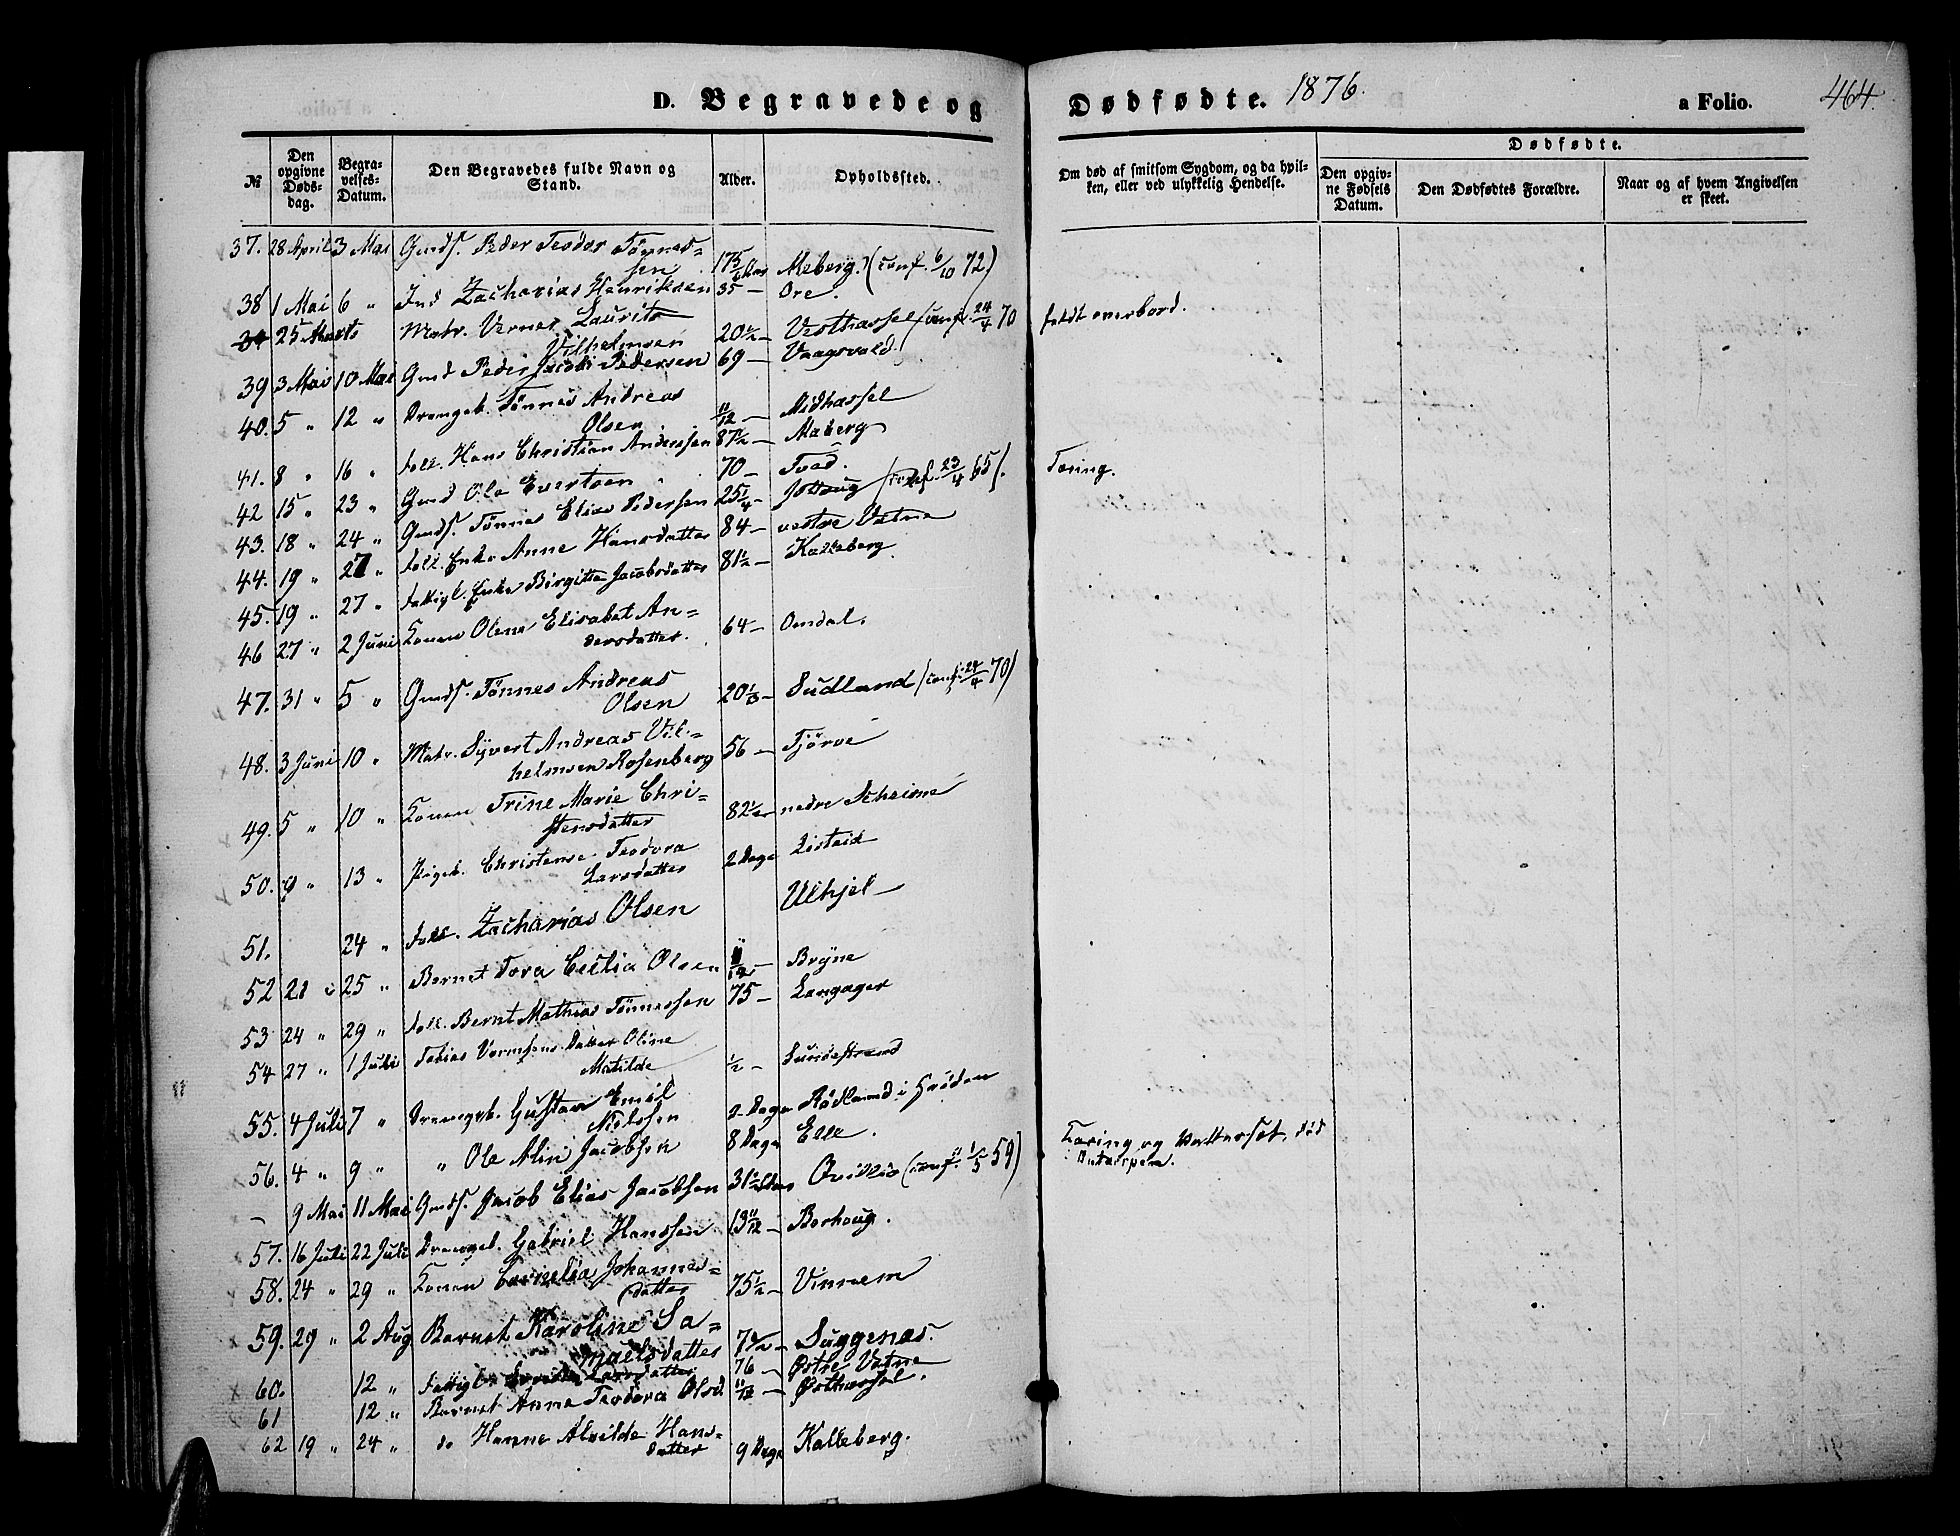 D. Begravede og Dødfødte. 1876. a Folio. 464.
№ Den opgivne Dødsdag. Begravelses-Datum. Den Begravedes fulde Navn og Stand. Alder. Opholdssted. Om død af smitsom Sygdom, og da hvilken, eller ved ulykkelig Hendelse. Dødfødte. Den opgivne Fødsels Datum. Den Dødfødtes Forældre. Naar og af hvem Angivelsen er skeet.
37. 28 April 3 Mai Gmds. Peder Teodor Tönnes=
sen 17 5/6 Aar Meberg. (conf. 6/10 72)
38 1 Mai 6 " Ind Zacharias Henriksen 35 — Ore.
25 Marts Matr. Verner Laurits
Vilhelmsen 20 1/2 — Vesthassel (conf. 24/4 70 faldt overbord.
39 3 Mai 10 Mai Gmd Peder Jacob Pedersen 69 — Vaagsvold.
40. 5 " 12 " Drengeb. Tönnes Andreas
Olsen 11/12 — Midhassel
41. 8 " 16 " fol. Hans Christian Anderssen 87 1/2 — Maberg
42 15 " 23 " Gmd Ole Evertsen 70 —
43. 18 " 24 " Gmds. Tönnes Elias Pedersen 25 1/4 — Jolleug (conf. 23/4 65). Tæring.
44. 19 " 27 " fol. Enke Anne Hansdatter 84 — vestre Vatne
45. 19 " 27 " fattigl. Enke Birgitte Jacobsdatter 81 1/2 — Kalleberg
46 27 " 2 Juni Konen Olene Elisabet An=
dersdatter. 64 — Omdal.
47. 31 " 5 " Gmds. Tönnes Andreas
Olsen 20 1/3 — Sudland (conf. 24/4 70)
48. 3 Juni 10 " Matr. Syvert Andreas Vil=
helmsen Rosenberg 56 — Tjörve
49. 5 " 10 " Konen Trine Marie Chri=
stensdatter 82 1/2 nedre Skeime
50. 9 " 13 " Pigeb. Christense Teodora
Larsdatter 2 Dage Listeid
51. 24 " fol. Zacharias Olsen Ulhjel
52 21 " 25 " Barnet Tora Cecilia Olsen 11/12 — Bryne
53 24 " 29 " fol. Bernt Mathias Tönnessen 75 — Langager
54 27 " 1 Juli Tobias Datter Oline
Matilde 1/2 — Sundestrand
55. 4 Juli 7 " Drengeb. Gustav Emil
Nielssen 2 Dage Rödland i
56. 4 " 9 " " Ole Alin Jacobsen 8 Dage Elle.
— 9 Mai 11 Mai Gmds. Jacob Elias Jacobsen 31 1/2 Aar (conf. 1/5 59) Tæring og Vattersot, död
Antverpen.
57. 16 Juli 22 Juli Drengeb. Gabriel Hanssen 13 11/12 — Borhaug.
58. 24 " 29 " Konen Cornelia Johannes=
datter 75 1/2 — Vinnem
59. 29 " 2 Aug Barnet Karoline Sa=
muelsdatter 7 1/2 — Suggenas.
60. 12 " fattigl. Larsdatter 76 — Østre Vatne
61 12 " Barnet Anne Teodora Olsd. 11/12 — Østhassel.
62 19 " 24 " do Hanne Alvilde Hans=
datter 9 Dage Kalleberg.